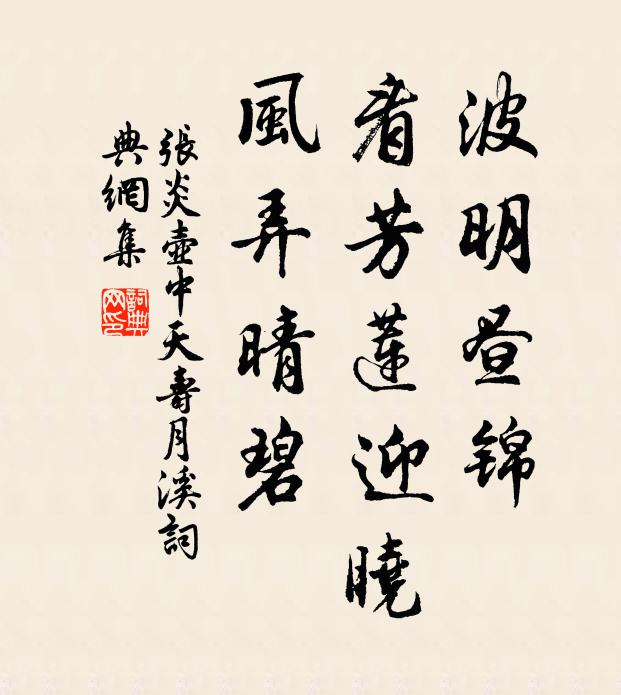 波明昼錦
看芳蓮迎曉
風弄晴碧
張炎壺中天壽月溪詞
典網集
詞典
网印